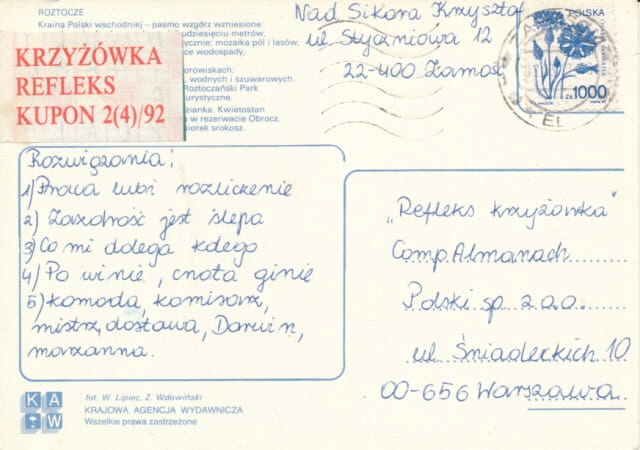 ROZTOCZE
Kraina Polski wschodniej – pasmo wzgórz wzniesione
dziesięciu metrów.
mozaika pól i lasów,
wodospady,
orowiskach:
wodnych i szuwarowych.
Roztoczański Park
urystyczne.
dzianka. Kwiatostan
w rezerwacie Obrocz.
srokosz.
KRZYŻÓWKA
REFLEKS
KUPON 2(4)/92
Nad. Sikora Krzysztof
ul Styczniowa 12
22-400 Zamość
POLSKA
ZŁ 1000
Rozwiązania:
1) Praca lubi rozliczenie
2) Zazdrość jest ślepa
3) Co mi dolega kolego
4) Po winie, cnota ginie
5) komoda, komisarz,
mistrz, dostawa, Darwin,
marzanna.
„Refleks krzyżówka"
Comp. Almanach
Polski sp. z o.o.
ul. Śniadeckich 10
00-656 Warszawa
KAW
fot. W. Lipiec, Z. Wdowiński
KRAJOWA AGENCJA WYDAWNICZA
Wszelkie prawa zastrzeżone